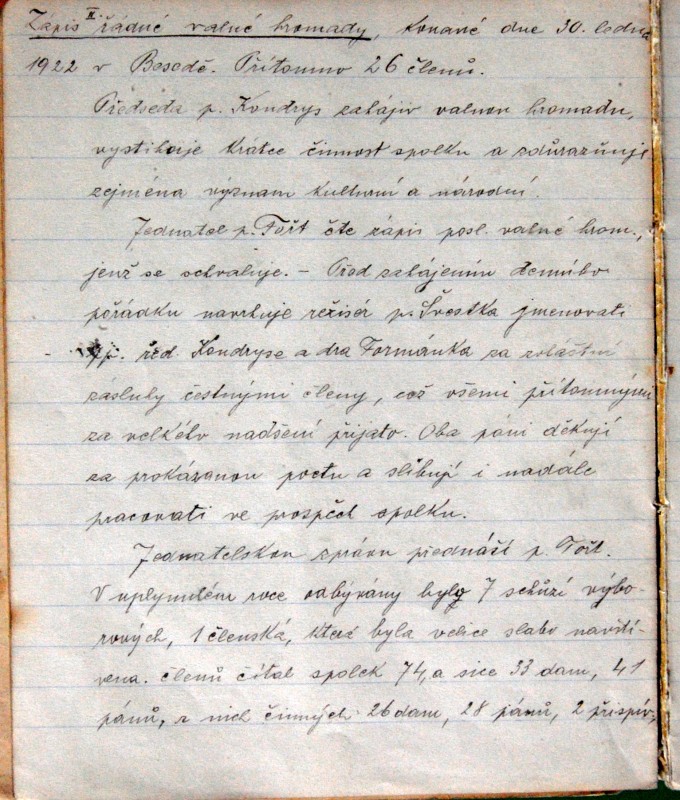 Zápis II. řádné valné hromady, konané dne 30. ledna
1922 v Besedě. Přítomno 26 členů.
Předseda p. Kondrys zahájiv valnou hromadu,
vystihuje krátce činnost spolku a zdůrazňuje
zejména význam kulturní a národní.
Jednatel p. Fořt čte zápis posl. valné hrom.,
jenž se schvaluje. – Před zahájením denního
pořádku navrhuje režisér p. Švestka jmenovati
pp. řed. Kondryse a dra Formánka za zvláštní
zásluhy čestnými členy, což všemi přítomnými
za velkého nadšení přijato. Oba páni děkují
za prokázanou poctu a slibují i nadále
pracovati ve prospěch spolku.
Jednatelskou zprávu přednáší p. Fořt.
V uplynulém roce odbývány byly 7 schůzí výbo-
rových, 1 členská, která byla velice slabo navští-
vena. členů čítal spolek 74, a sice 33 dam, 41
pánů, z nich činných 26 dam, 28 pánů, 2 přispív.